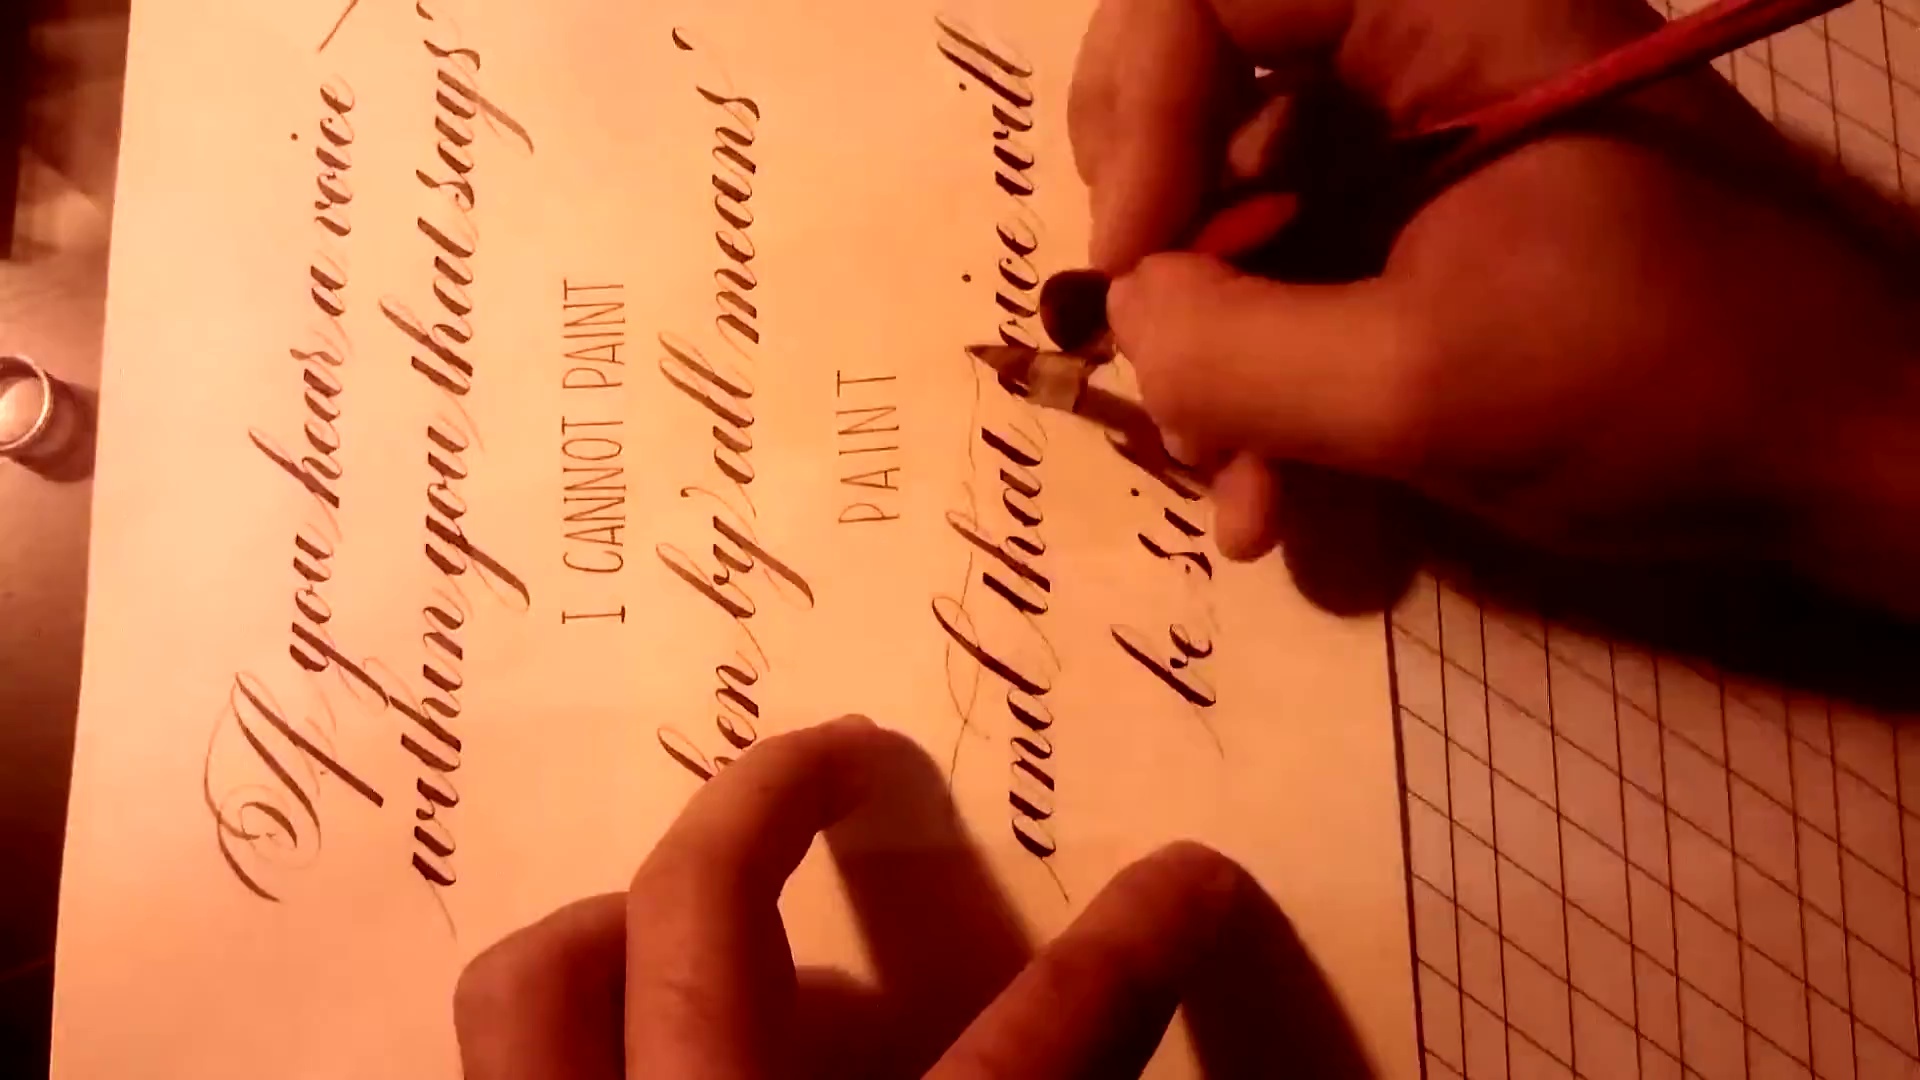 If you hear a voice
within you that says
I CANNOT PAINT
hen by all means
PAINT
and that voice will
be sil